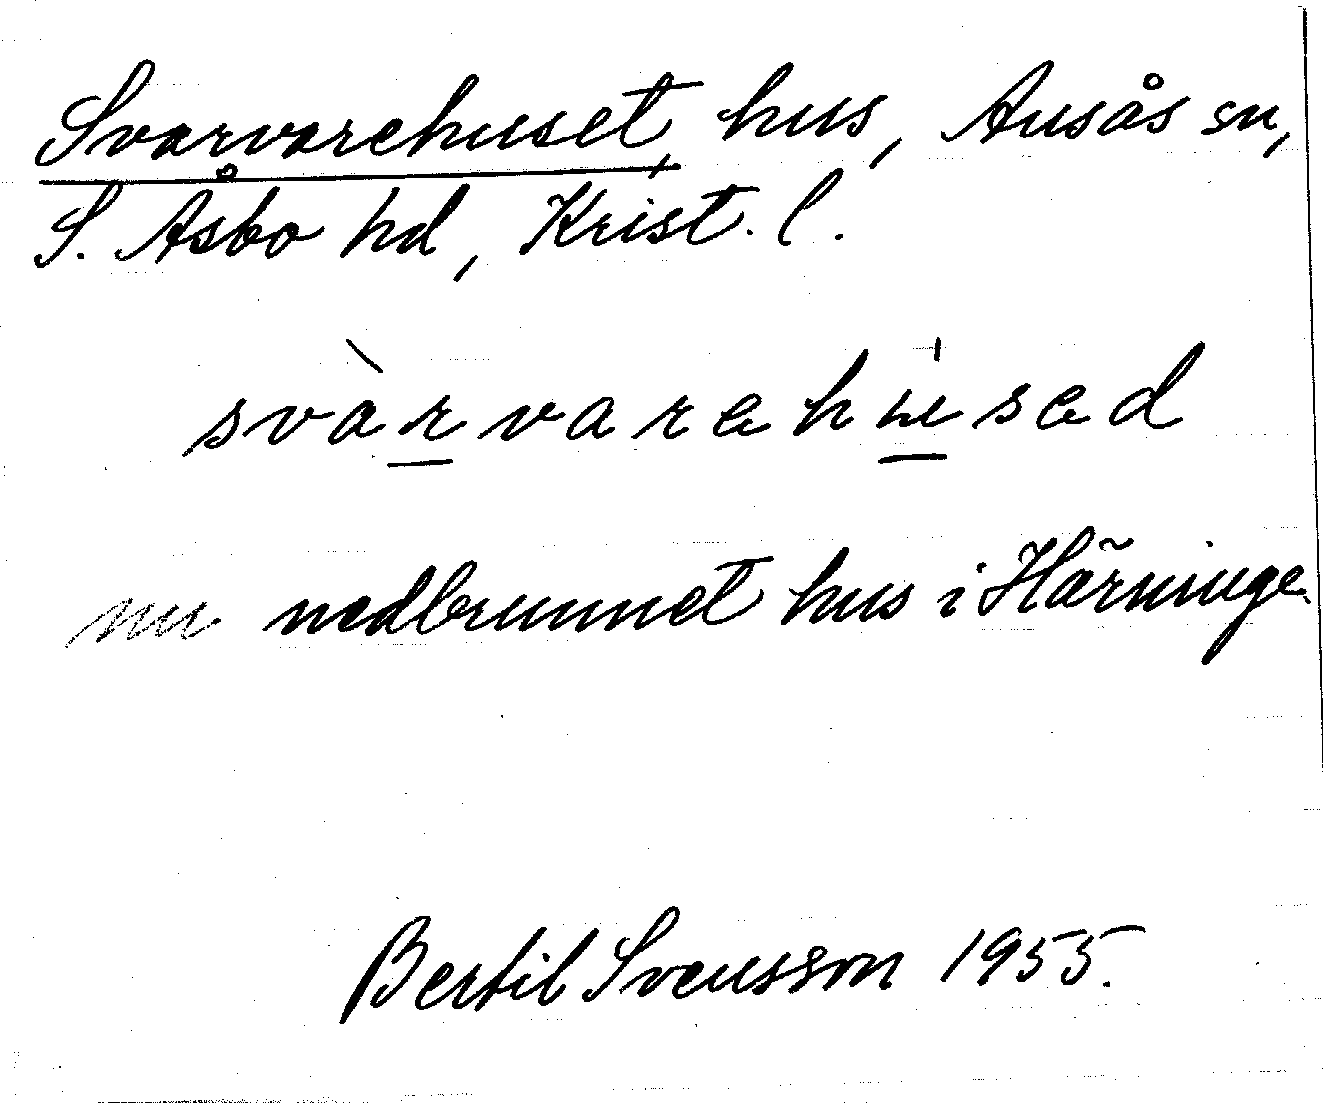 Svarvarehuset, hus, Ausås sn,
S. Åsbo hd, Krist. l.
svàrvarehúsed
nu nedbrunnet hus i Härninge.
Bertil Svensson 1955.